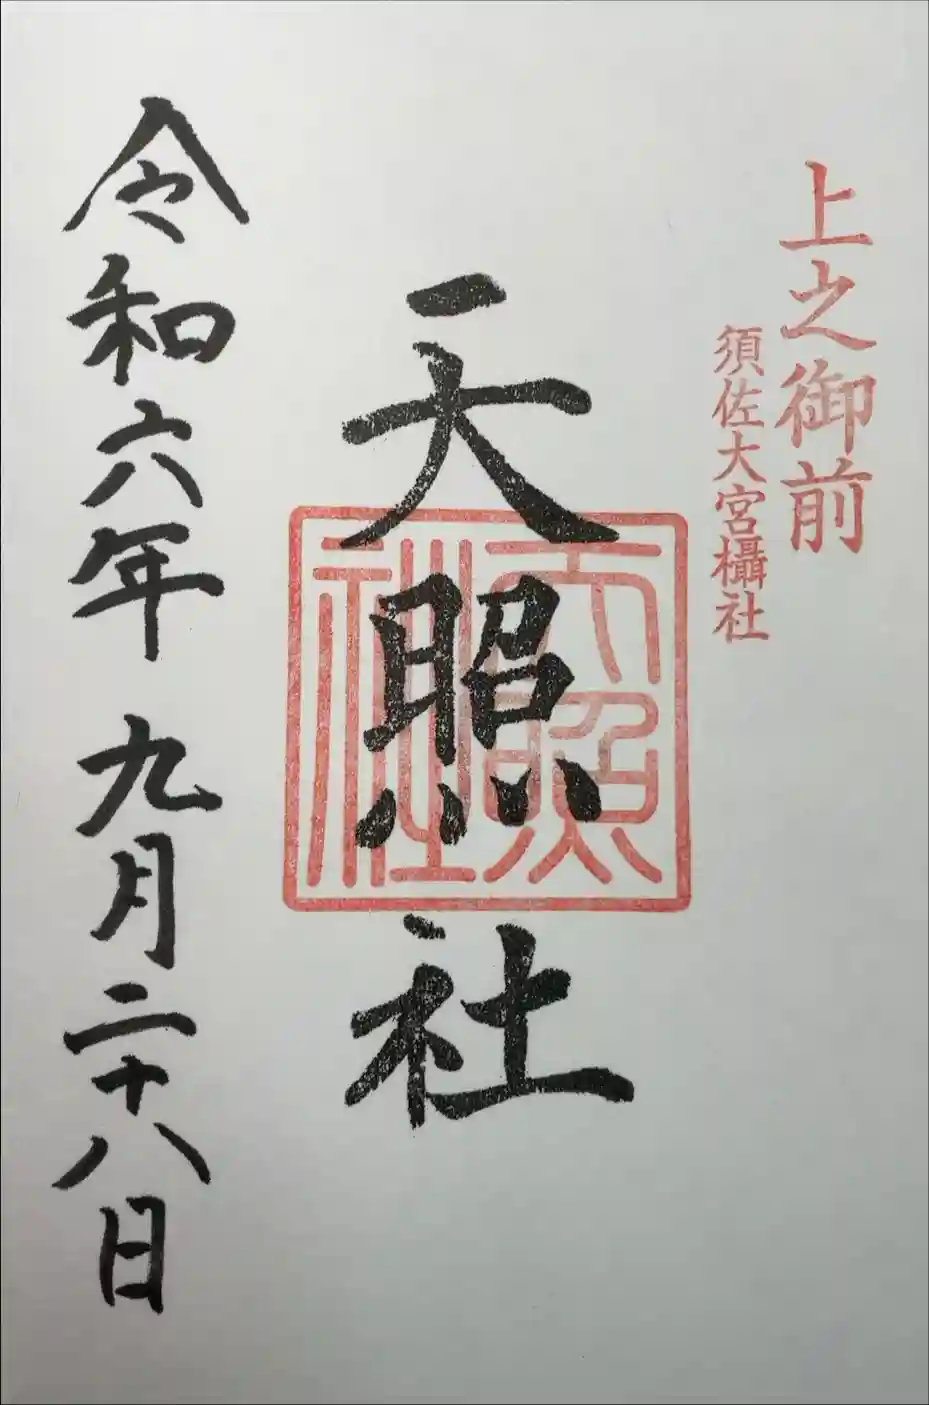 上之御前
須佐大宮攝社
天照社
天照社
令和六年九月二十八日